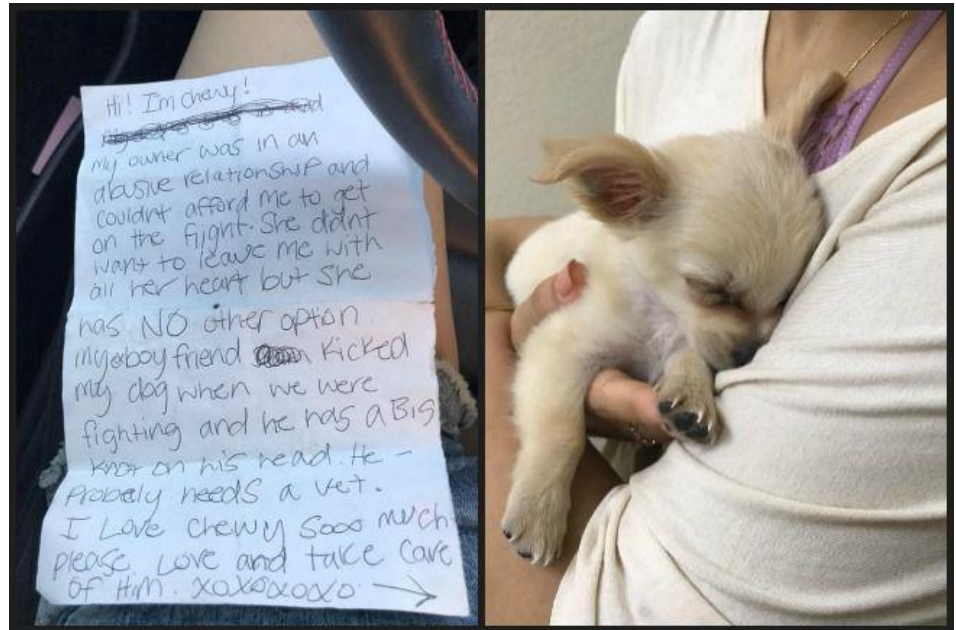 Hi! I'm chewy!
my owner was in an
abusive relationship and
couldnt afford me to get
on the flight. She didnt
want to leave me with
all her heart but she
has NO other option.
my ex boyfriend kicked
my dog when we were
fighting and he has a Big
knot on his head. He -
Probaly needs a vet.
I Love Chewy Sooo much
please Love and take care
of Him. xoxoxoxo →